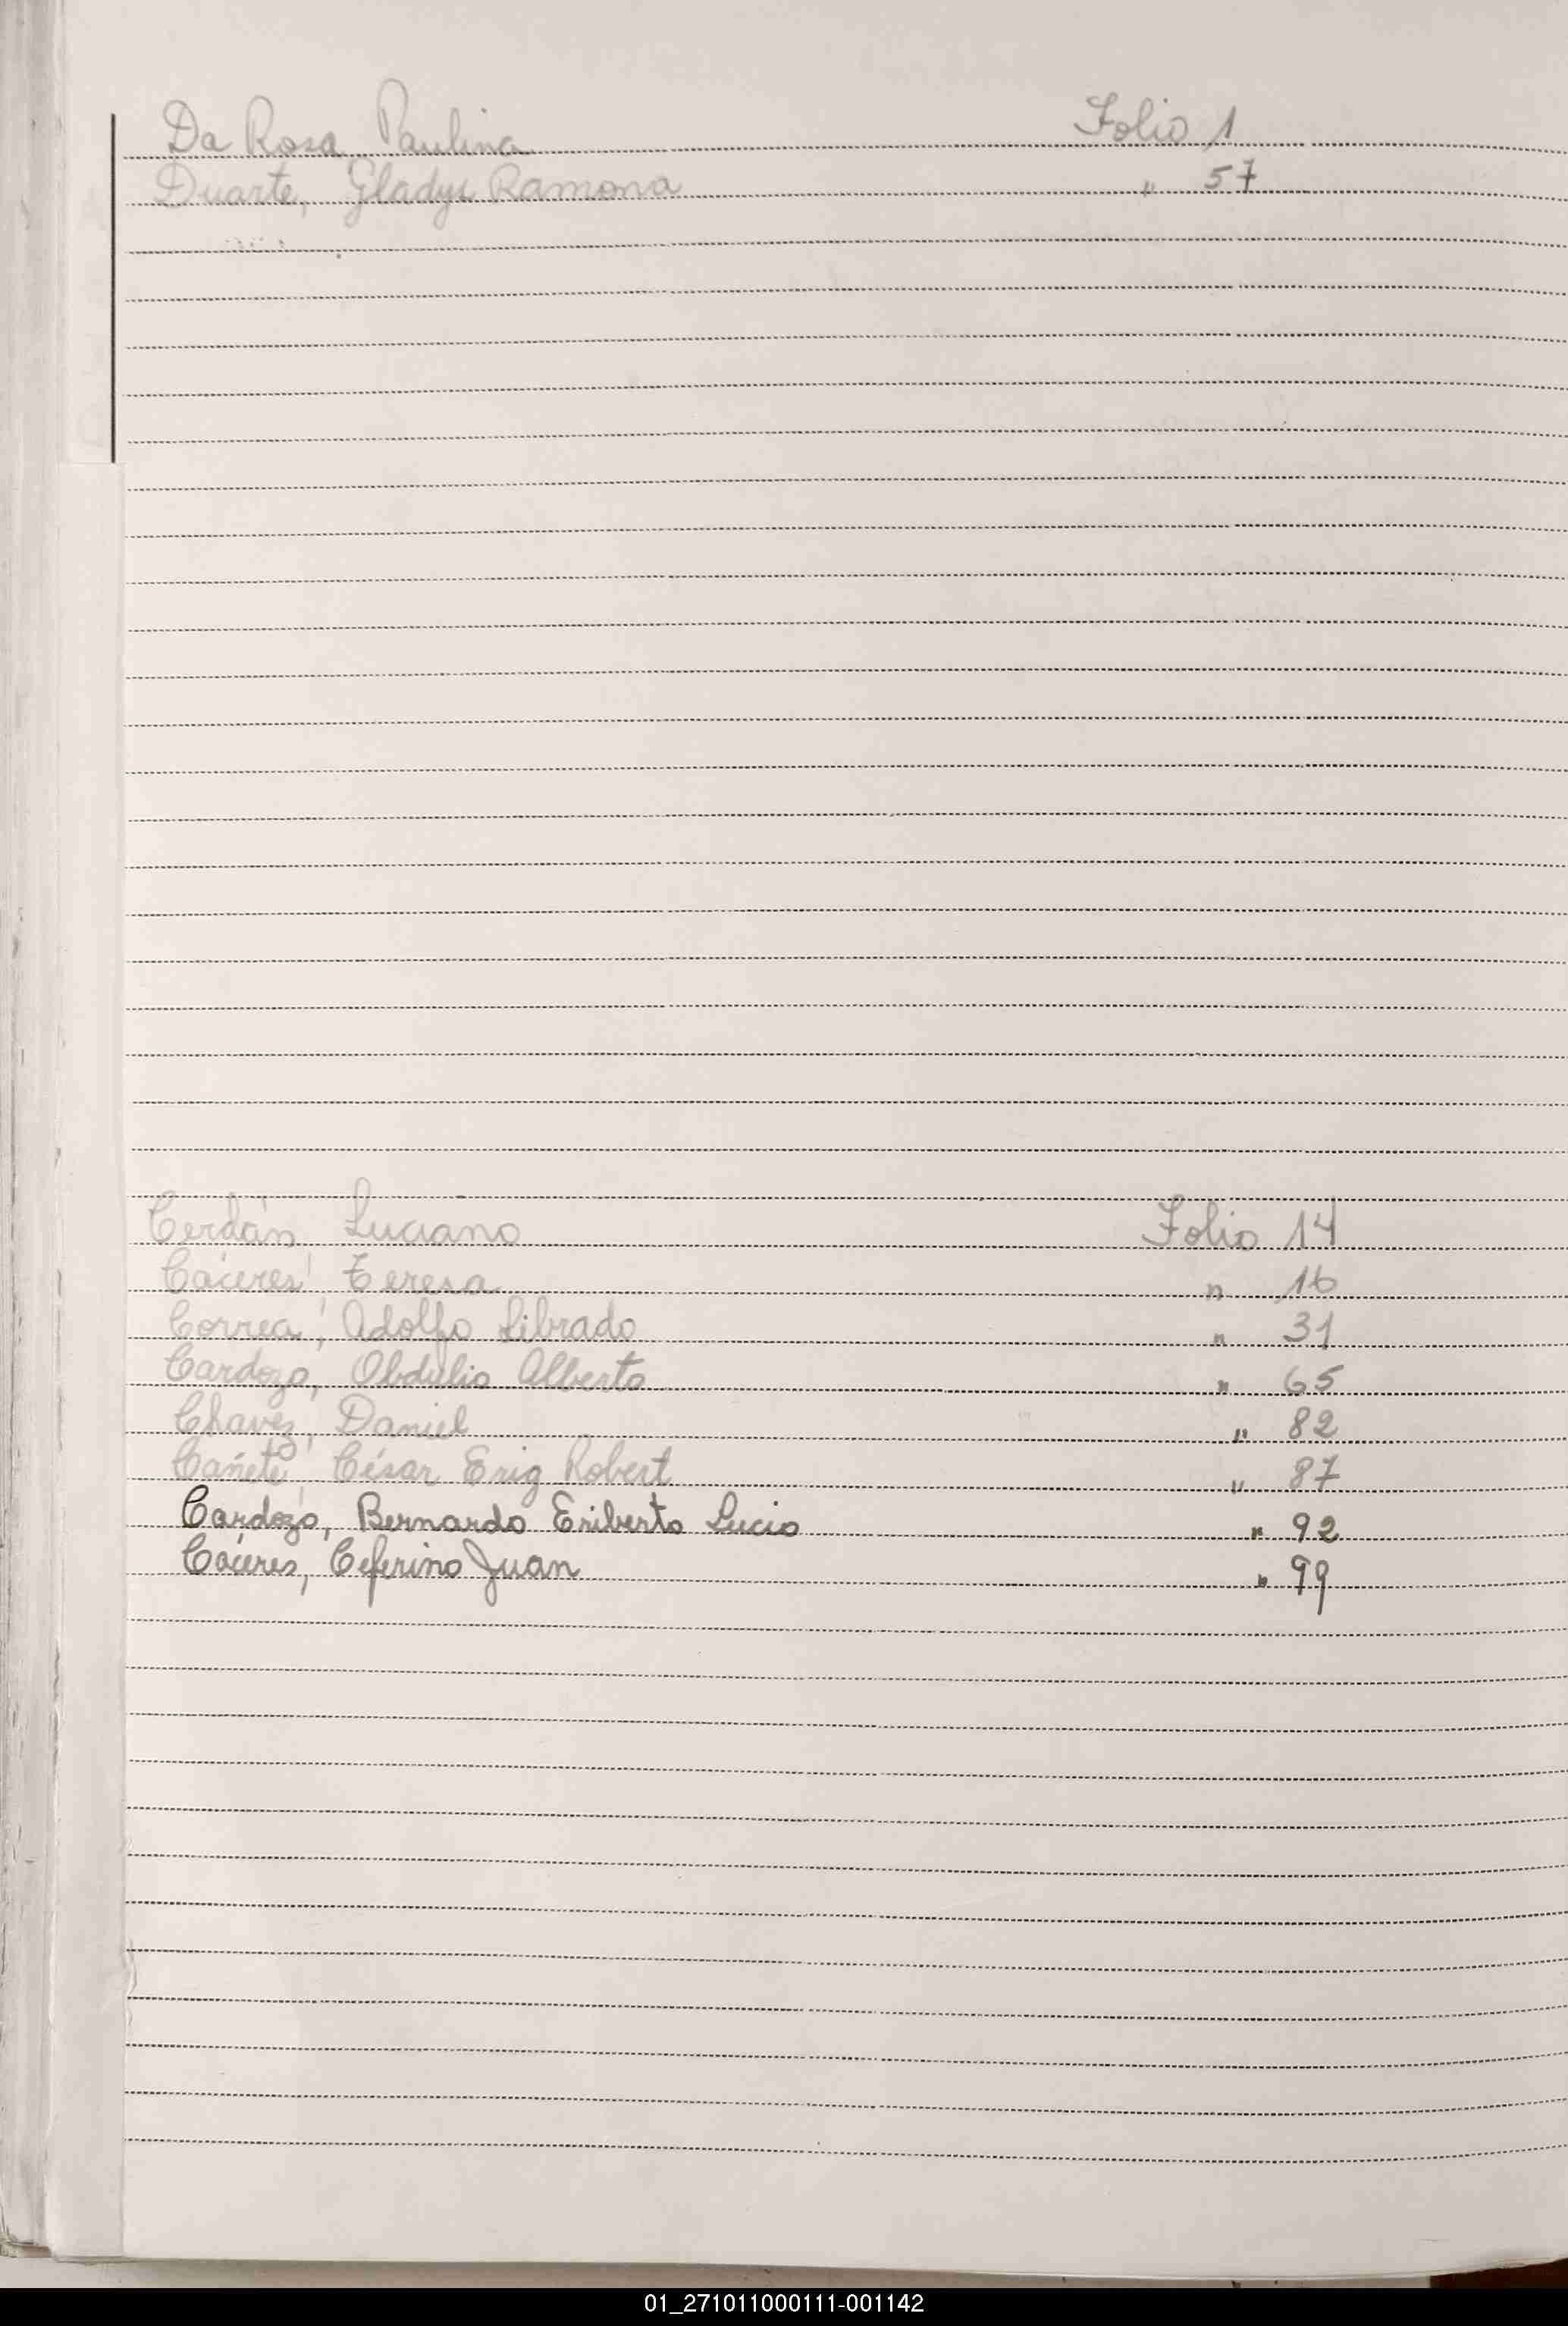 Da Rosa, Paulina Folio 1
Duarte, Gladys Ramona " 57
Cerdán, Luciano Folio 14
Cáceres, Teresa " 16
Correa, Adolfo Librado " 31
Cardozo, Obdulio Alberto " 65
Chavez, Daniel " 82
Cañete, César Erig Robert " 87
Cardozo, Bernardo Eriberto Lucio " 92
Cáceres, Ceferino Juan " 99
01_271011000111-001142